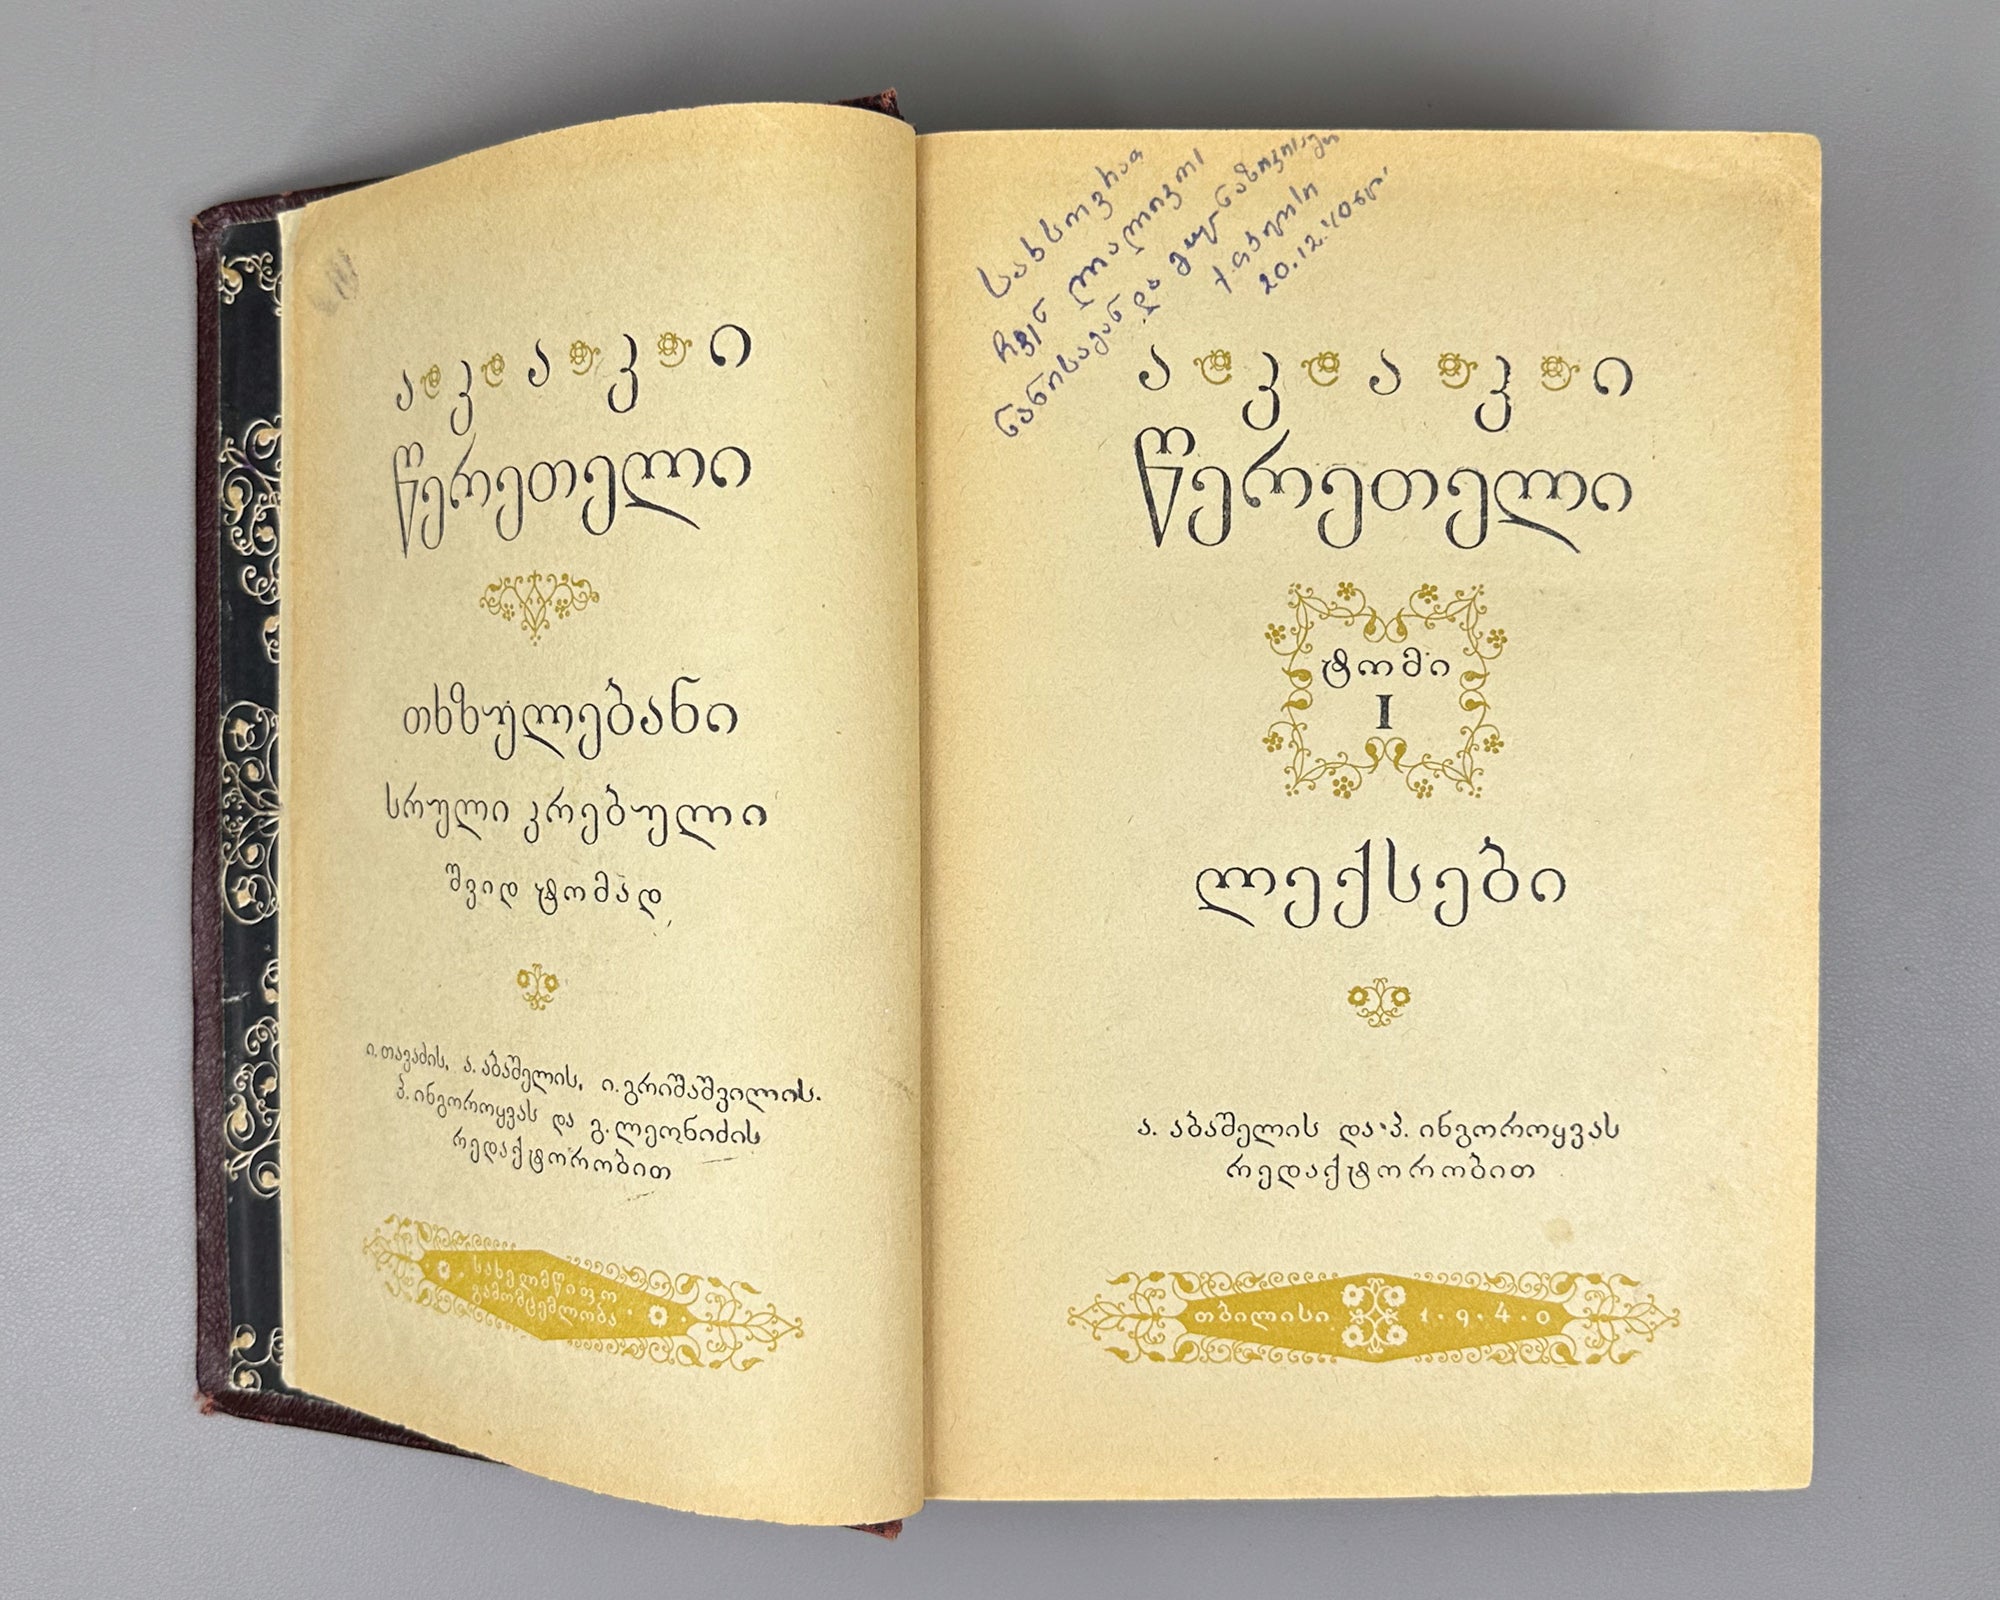 აკაკი
წერეთელი
თხზულებანი
სრული კრებული
შვიდ ტომად
ი. თავაძის, ა. აბაშელის, ი. გრიშაშვილის.
პ. ინგოროყვას და გ. ლეონიძის
რედაქტორობით
სახელმწიფო
გამომცემლობა
სახსოვრად
ჩვენ
და
20.12.40
აკაკი
წერეთელი
ტომი
I
ლექსები
ა. აბაშელის და პ. ინგოროყვას
რედაქტორობით
თბილისი 1.9.4.0